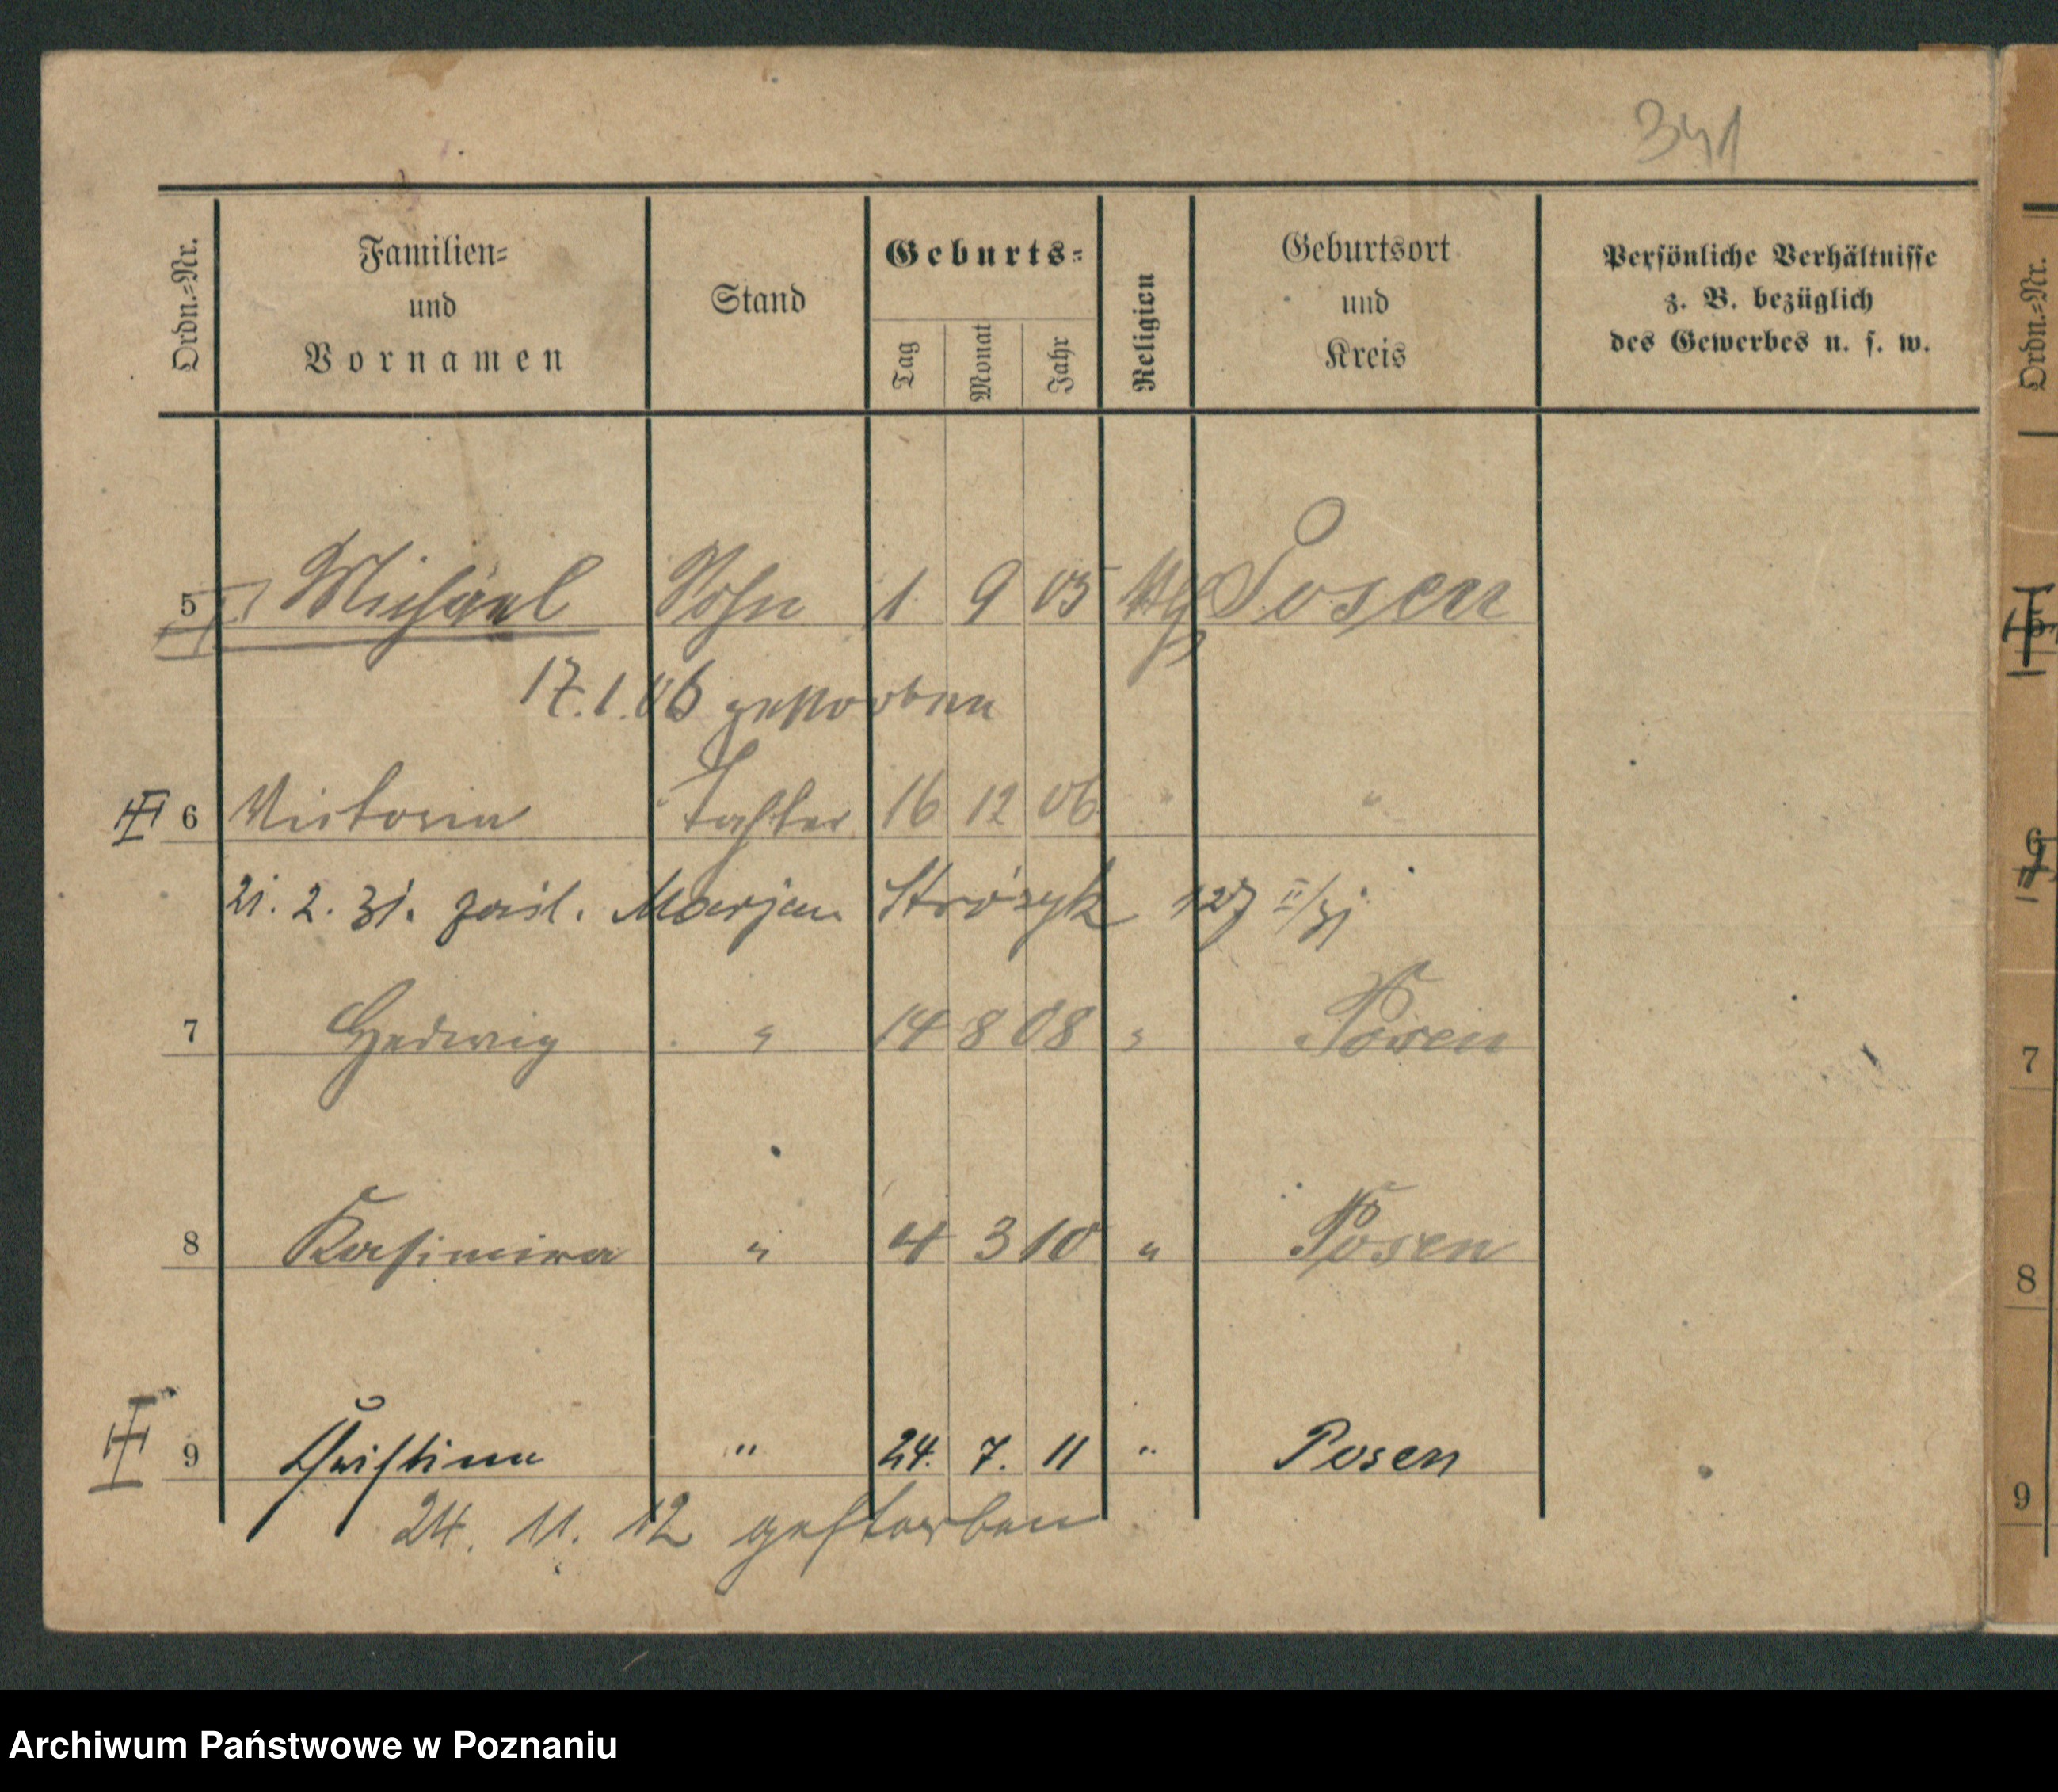 341
Ordn.=Nr.
Familien=
und
Vornamen
Stand
Geburts=
Tag
Monat
Jahr
Religion
Geburtsort
und
Kreis
Persönliche Verhältnisse
z. B. bezüglich
des Gewerbes u. s. w.
5 Michael Sohn 1 9 05 Posen
17.1.06 gestorben
6 Victoria Tochter 16 12 06 " "
21. 2. 31. zaśl. Marjan Strózyk 127 II/31
7 Hedwig " 14 8 08 " Posen
8 Kasimira " 4 3 10 " Posen
9 Christina " 24. 7. 11 " Posen
24. 11. 12 gestorben
Ordn.=Nr.
6
7
8
9
Archiwum Państwowe w Poznaniu